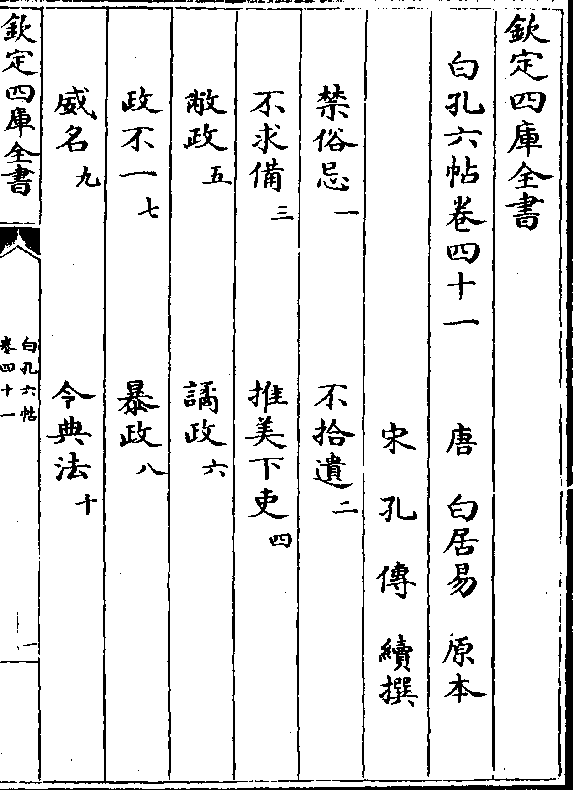 欽定四庫全書
白孔六帖卷四十一
唐 白居易 原本
宋 孔傳 續撰
禁俗忌一
不拾遺二
不求備三
推美下吏四
敝政五
譎政六
政不一七
暴政八
威名九
令典法十
欽定四庫全書
白孔六帖
卷四十一
一